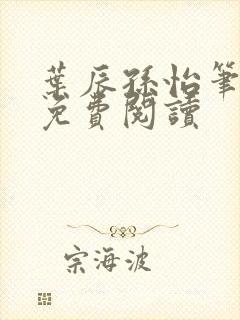 葉辰孫怡筆
免費閱讀
宗海波